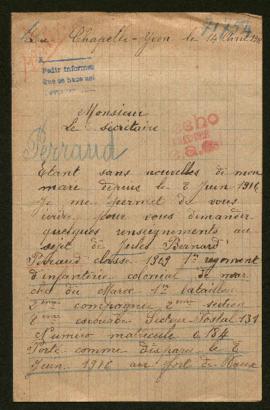 La Chapelle-Yvon le 14 Avril
Pedir informes
Monsieur
Le secrétaire
Perraud
Etant sans nouvelles de mon
mari depuis le 8 Juin 1916
Je me permet de vous
écrire pour vous demander
quelques renseignements au
sujet de Jules Bernard
Perraud classe 1909 1er regiment
d'infanterie colonial de mar
che du Maroc 1er bataillon
2ème compagnie 2ème section
escouade Secteur Postal 131
Numéro matricule 6184
Porté comme disparu le 8
Juin 1916 au fort de Vaux